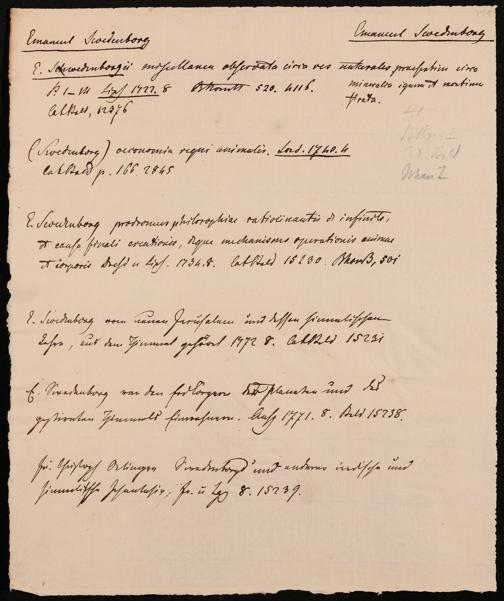 Emanuel Swedenborg
Emanuel Swedenborg
E. Schwedenborgii miscellanea observata circa res naturales praesertim circa
B I–III Lips. 1722. 8 520. 4116. mineralia ignem et montium
Cat Bald, 12376 strata.
(Swedenborg) oeconomia regni animalis. Lond. 1740. 4
Cat Bald p. 166. 2845
E. Swedenborg prodromus philosophiae ratiocinantis de infinito,
et causa finali creationis, deque mechanismo operationis animae
et corporis Dresd u Lips. 1734. 8. Cat Bald 15230.
E. Swedenborg vom neuen Jerusalem und dessen himmlischen
Lehre, aus dem Himmel gehört 1772 8. Cat Bald 15231
E. Swedenborg von den Erdkörpern der Planeten und des
gestirnten Himmels Einwohnern. 1771. 8. Bald 15238.
Fr. Christoph Oetinger Swedenborgs und anderer irdische und
himmlische Philosophie, Fr. u Lpz 8. 15239.